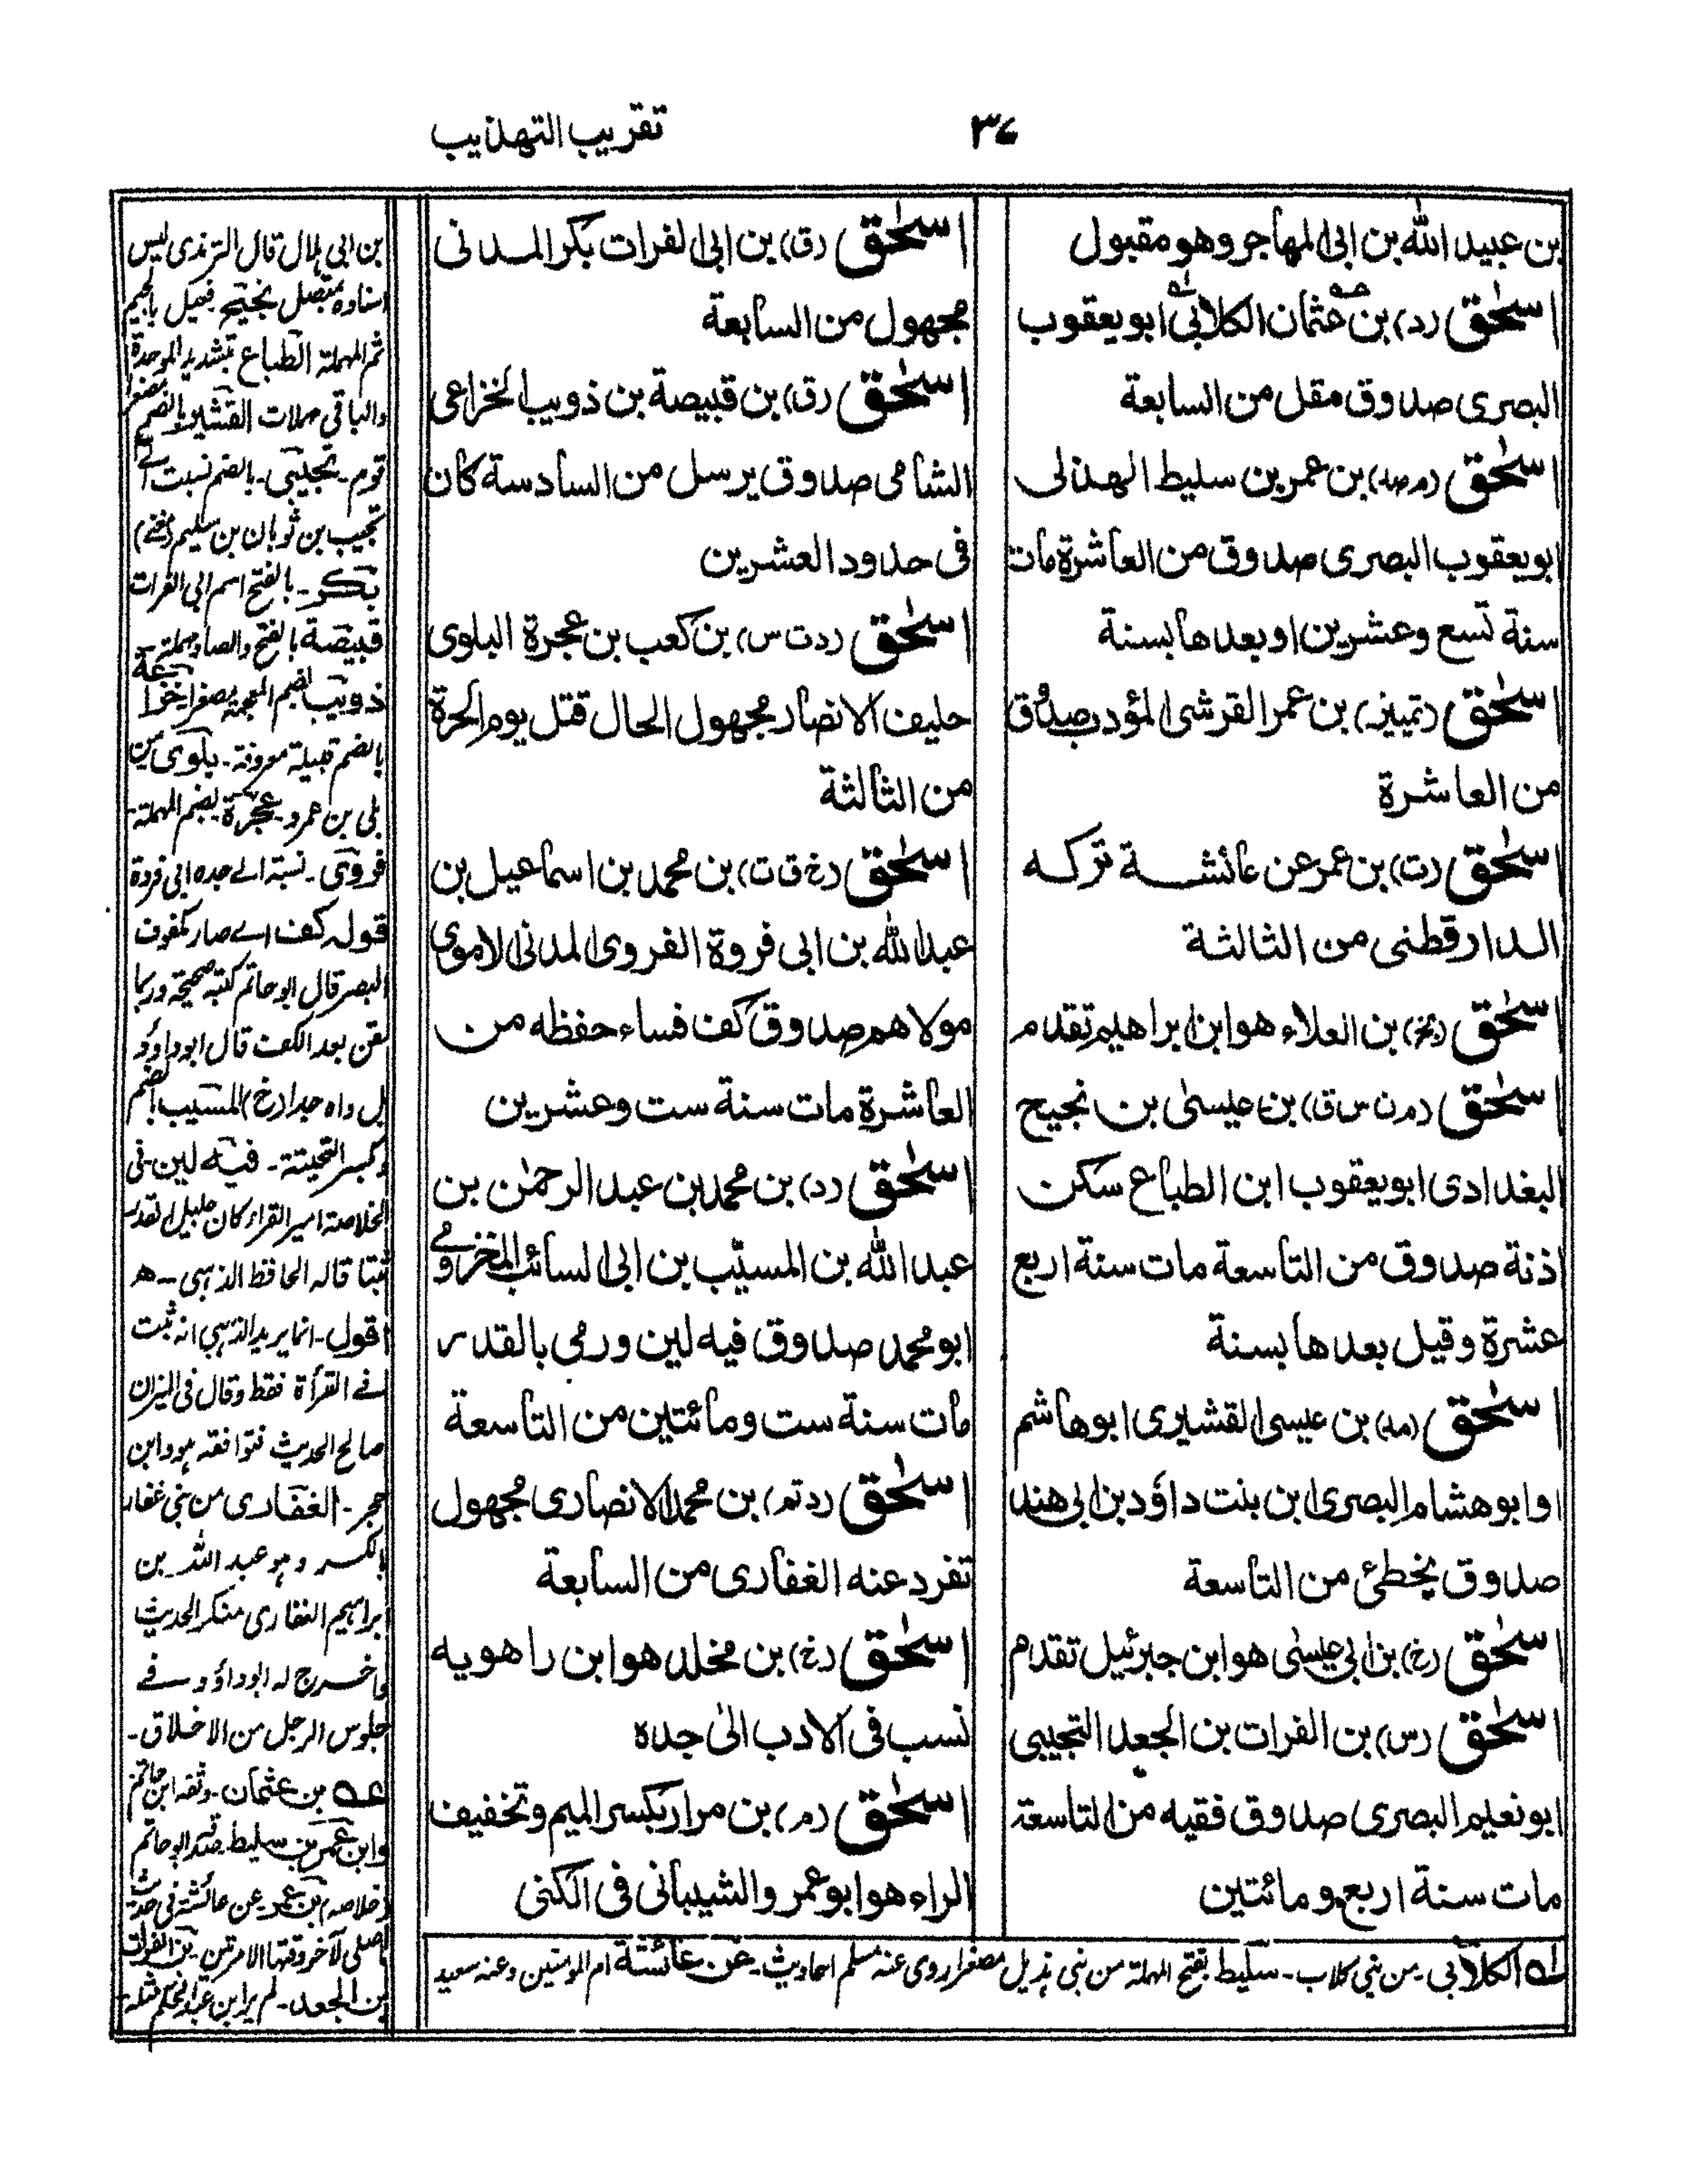 تقريب التهذيب
٣٧
بن عبيد الله بن ابى المهاجر وهو مقبول
اسحٰق (د) بن عثمان الكلابى ابو يعقوب
البصرى صدوق مقل من السابعة
اسحٰق (م صد) بن عمر بن سليط الهذلى
ابو يعقوب البصرى صدوق من العاشرة مات
سنة تسع وعشرين او بعدها بسنة
اسحٰق (تمييز) بن عمر القرشى المؤدب صدوق
من العاشرة
اسحٰق (ت) بن عمر عن عائشة تركه
الدارقطنى من الثالثة
اسحٰق (بخ) بن العلاء هو ابن ابراهيم تقدم
اسحٰق (م ت س ق) بن عيسىٰ بن نجيح
البغدادى ابو يعقوب ابن الطباع سكن
اذنة صدوق من التاسعة مات سنة اربع
عشرة وقيل بعدها بسنة
اسحٰق (مد) بن عيسى القشيرى ابو هاشم
او ابو هشام البصرى ابن بنت داؤد بن ابى هند
صدوق يخطئ من التاسعة
اسحٰق (خ) بن ابى عيسىٰ هو ابن جبرئيل تقدم
اسحٰق (س) بن الفرات بن الجعد التجيبى
ابو نعيم البصرى صدوق فقيه من التاسعة
مات سنة اربع و مائتين
اسحٰق (ق) بن ابى الفرات بكر المدنى
مجهول من السابعة
اسحٰق (ق) بن قبيصة بن ذويب الخزاعى
الشامى صدوق يرسل من السادسة كان
فى حدود العشرين
اسحٰق (د ت س) بن كعب بن عجرة البلوى
حليف الانصار مجهول الحال قتل يوم الحرة
من الثالثة
اسحٰق (خ ق ت) بن محمد بن اسماعيل بن
عبد الله بن ابى فروة الفروى المدنى الاموى
مولاهم صدوق كف فساء حفظه من
العاشرة مات سنة ست وعشرين
اسحٰق (د) بن محمد بن عبد الرحمٰن بن
عبد الله بن المسيّب بن ابى السائب المخزومے
ابو محمد صدوق فيه لين ورمى بالقدر
مات سنة ست ومائتين من التاسعة
اسحٰق (د تم) بن محمد الانصارى مجهول
تفرد عنه الغفارى من السابعة
اسحٰق (خ) بن مخلد هو ابن راهويه
نسب فى الادب الىٰ جده
اسحٰق (م) بن مرار بكسر الميم وتخفيف
الراء هو ابو عمر والشيبانى فى الكنى
الكلابى۔ من بنى كلاب۔ سليط بفتح المهملة من بنى هذيل مصغرا روى عنه مسلم احاديث۔ عن عائشة ام المومنين وعنه سعيد
بن ابى هلال قال الترمذى ليس
اسناده متصل نجيح۔ فعيل بالجيم
ثم المهملة الطباع بتشديد الموحدة
والباقى مهملات القشير بالضم مصغر
قوم۔ تجيبى۔ بالضم نسبت الے
تجيب بن ثوبان بن سليم (مغنے)
بكر۔ بالفتح اسم ابى الفرات
قبيصة بالفتح والصاد مهملة۔
ذويب بضم المعجمة مصغرا خزاعة
بالضم قبيلة معروفة۔ بلوى من
بلى بن عمرو۔ عجرة بضم المهملة۔
فروى۔ نسبة الے جده ابى فروة
قوله كف اے صار كمفوف
البصر قال ابو حاتم كتبه صحيحة وربما
لقن بعد الكف قال ابو داؤد
بل واه جدا (خ) المسيب بضم
وكسر التحيتة۔ فيه لين۔ فى
الخلاصة امير القراء كان جليل القدر
ثبتا قاله الحافظ الذهبى۔ هـ
اقول۔ انما يريد الذهبى انه ثبت
فے القرأة فقط وقال فى الميزان
صالح الحديث فتوافقه هو وابن
حجر۔ الغفارى من بنى غفار
بالكسر وهو عبد الله بن
ابراهيم الغفارى منكر الحديث
واخرج له ابو داؤد فے
جلوس الرجل من الاخلاق۔
عه بن عثمان۔ وثقه ابن حاتم
وابن عمر بن سليط صدقه ابو حاتم
خلاصه بن عمر عن عائشة فى حديث
ما صلى لآخر وقتها الا مرتين۔ بن الفرات
بن الجعد۔ لم ير ابن عبد الحكم مثله۔